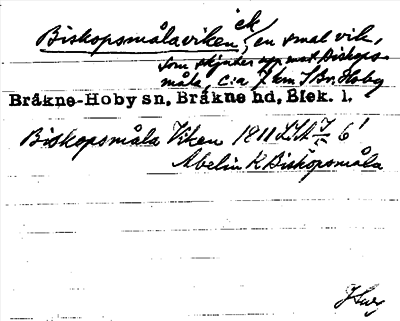 Biskopsmålaviken, en smal vik,
som skjuter upp mot Biskops-
måla, c:a 7 km S Br. Hoby
Bräkne-Hoby sn, Bräkne hd, Blek. l.
Biskopsmåla Viken 1811 6'
Abelin K Biskopsmåla